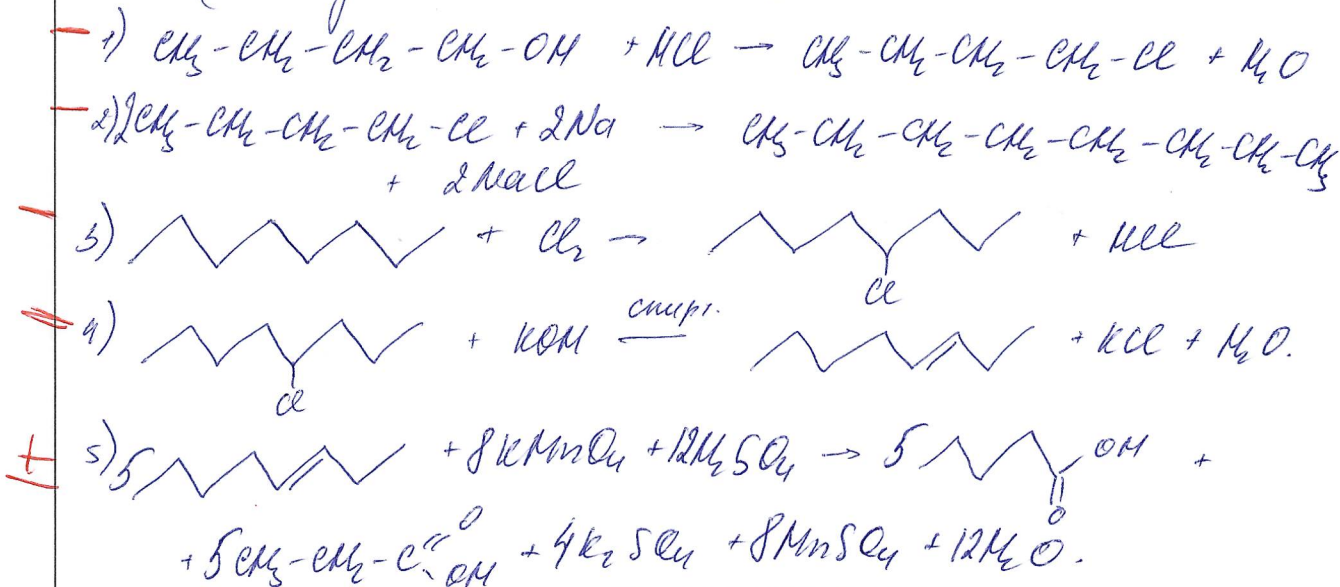 1) CH₃-CH₂-CH₂-CH₂-OH + HCl → CH₃-CH₂-CH₂-CH₂-Cl + H₂O
2) 2CH₃-CH₂-CH₂-CH₂-Cl + 2Na → CH₃-CH₂-CH₂-CH₂-CH₂-CH₂-CH₂-CH₃
+ 2NaCl
3) + Cl₂ → + HCl
Cl
спирт.
4) + KOH + KCl + H₂O.
Cl
5) 5 + 8KMnO₄ + 12H₂SO₄ → 5 OH +
O
+ 5CH₃-CH₂-C O OH + 4K₂SO₄ + 8MnSO₄ + 12H₂O.